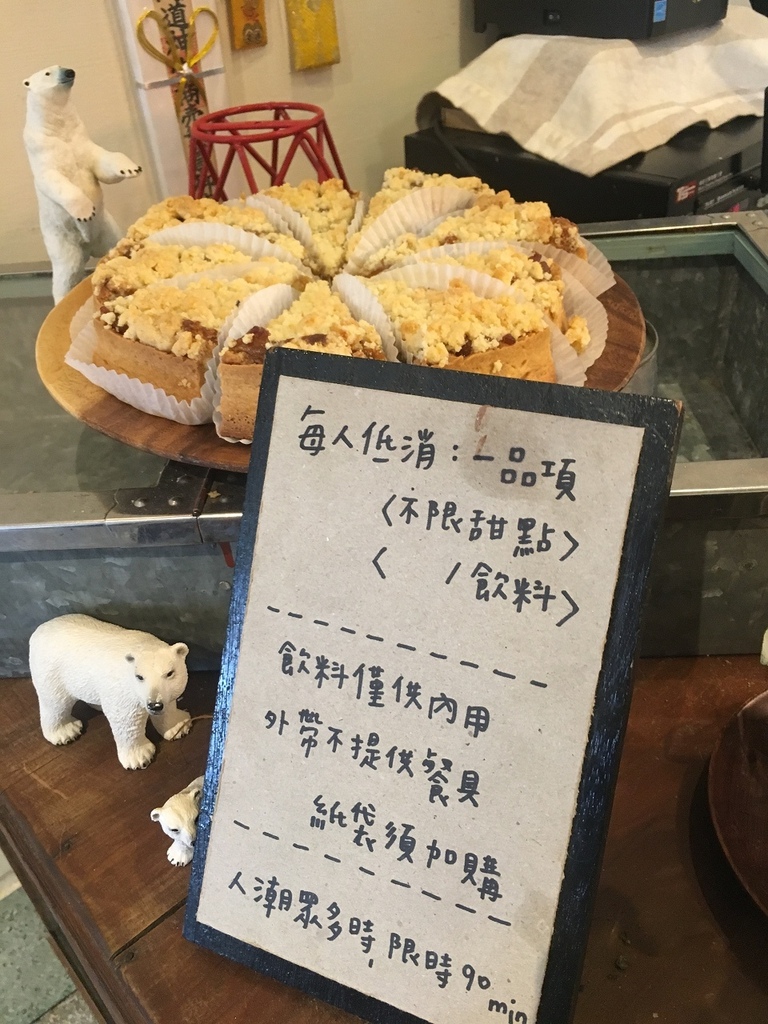 道神
商売
每人低消：一品項
〈不限甜點〉
〈　　/飲料〉
飲料僅供內用
外帶不提供餐具
紙袋須加購
人潮眾多時，限時90 min